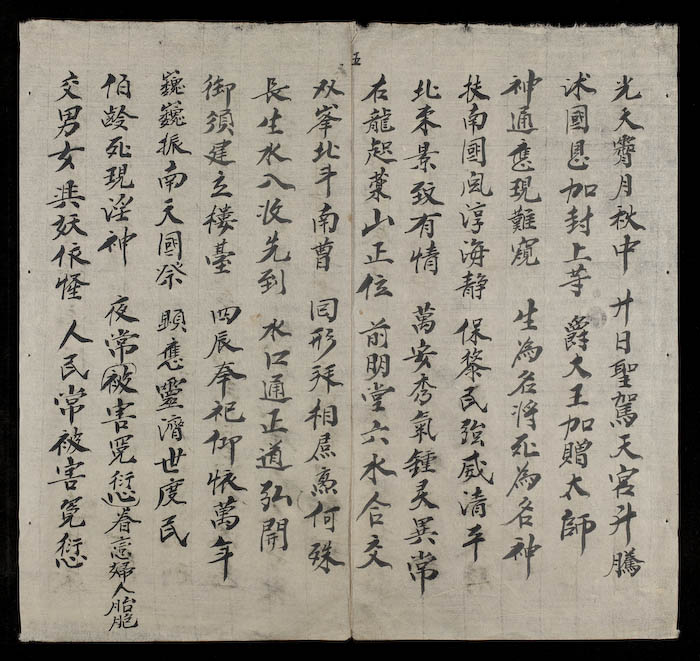 五
光天霽月秋中 廿日聖駕天宮升騰
沭國恩加封上等 爵大王加贈太師
神通應現難窺 生為名將死為名神
扶南國風淳海静 保黎民強威清平
北來景致有情 萬安秀氣鍾灵異常
右龍起藁山正位 前明堂六水合交
双峯北斗南曹 同形拜相 何殊
長生水入收先到 水口通正道弘開
御須建立樓臺 四辰奉祀仰恢萬年
巍巍振南天國祭 顕應靈濟世度民
伯齡死現淫神 夜常被害冤愆眷恋婦人胎胞
交男女兴妖依怪 人民常被害冤愆